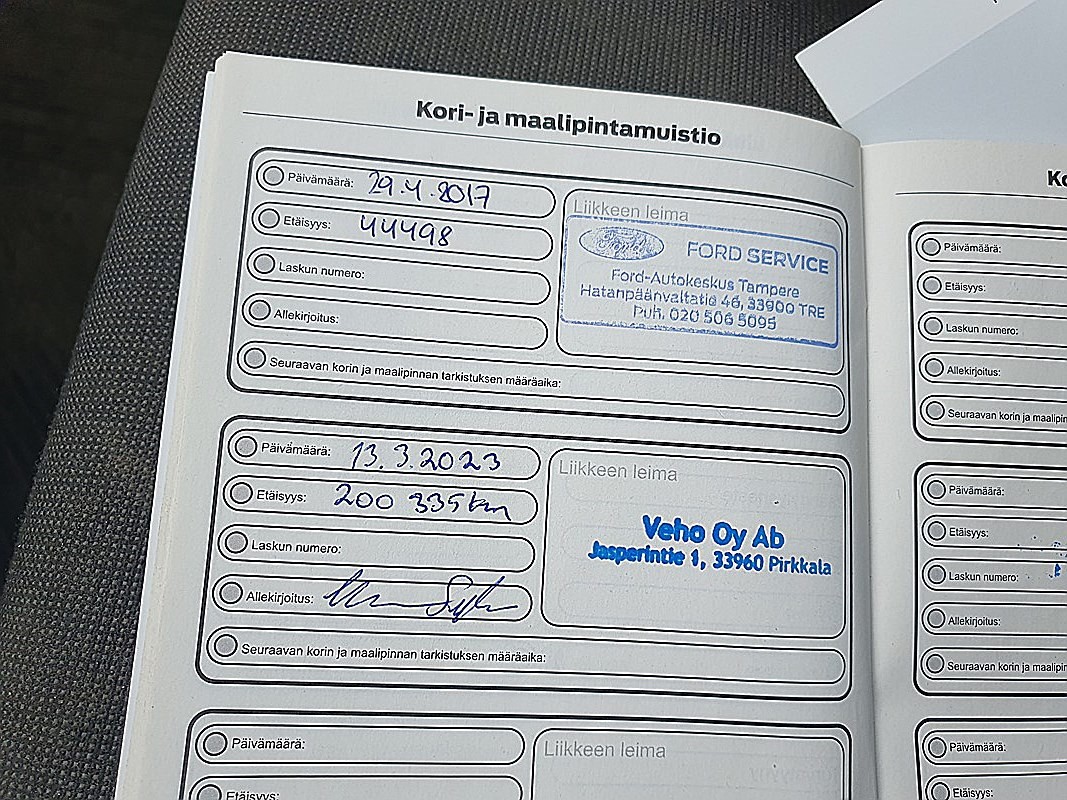 Kori- ja maalipintamuistio
Päivämäärä: 29.4.2017
Etäisyys: 44498
Laskun numero:
Allekirjoitus:
Seuraavan korin ja maalipinnan tarkistuksen määräaika:
Liikkeen leima
Ford
FORD SERVICE
Ford-Autokeskus Tampere
Hatanpäänvaltatie 46, 33900 TRE
Puh. 020 506 5095
Päivämäärä: 13.3.2023
Etäisyys: 200 335km
Laskun numero:
Allekirjoitus:
Seuraavan korin ja maalipinnan tarkistuksen määräaika:
Liikkeen leima
Veho Oy Ab
Jasperintie 1, 33960 Pirkkala
Päivämäärä:
Etäisyys:
Liikkeen leima
Ko
Päivämäärä:
Etäisyys:
Laskun numero:
Allekirjoitus:
Seuraavan korin ja maalipin
Päivämäärä:
Etäisyys:
Laskun numero:
Allekirjoitus:
Seuraavan korin ja maalipin
Päivämäärä:
Etäisyys: